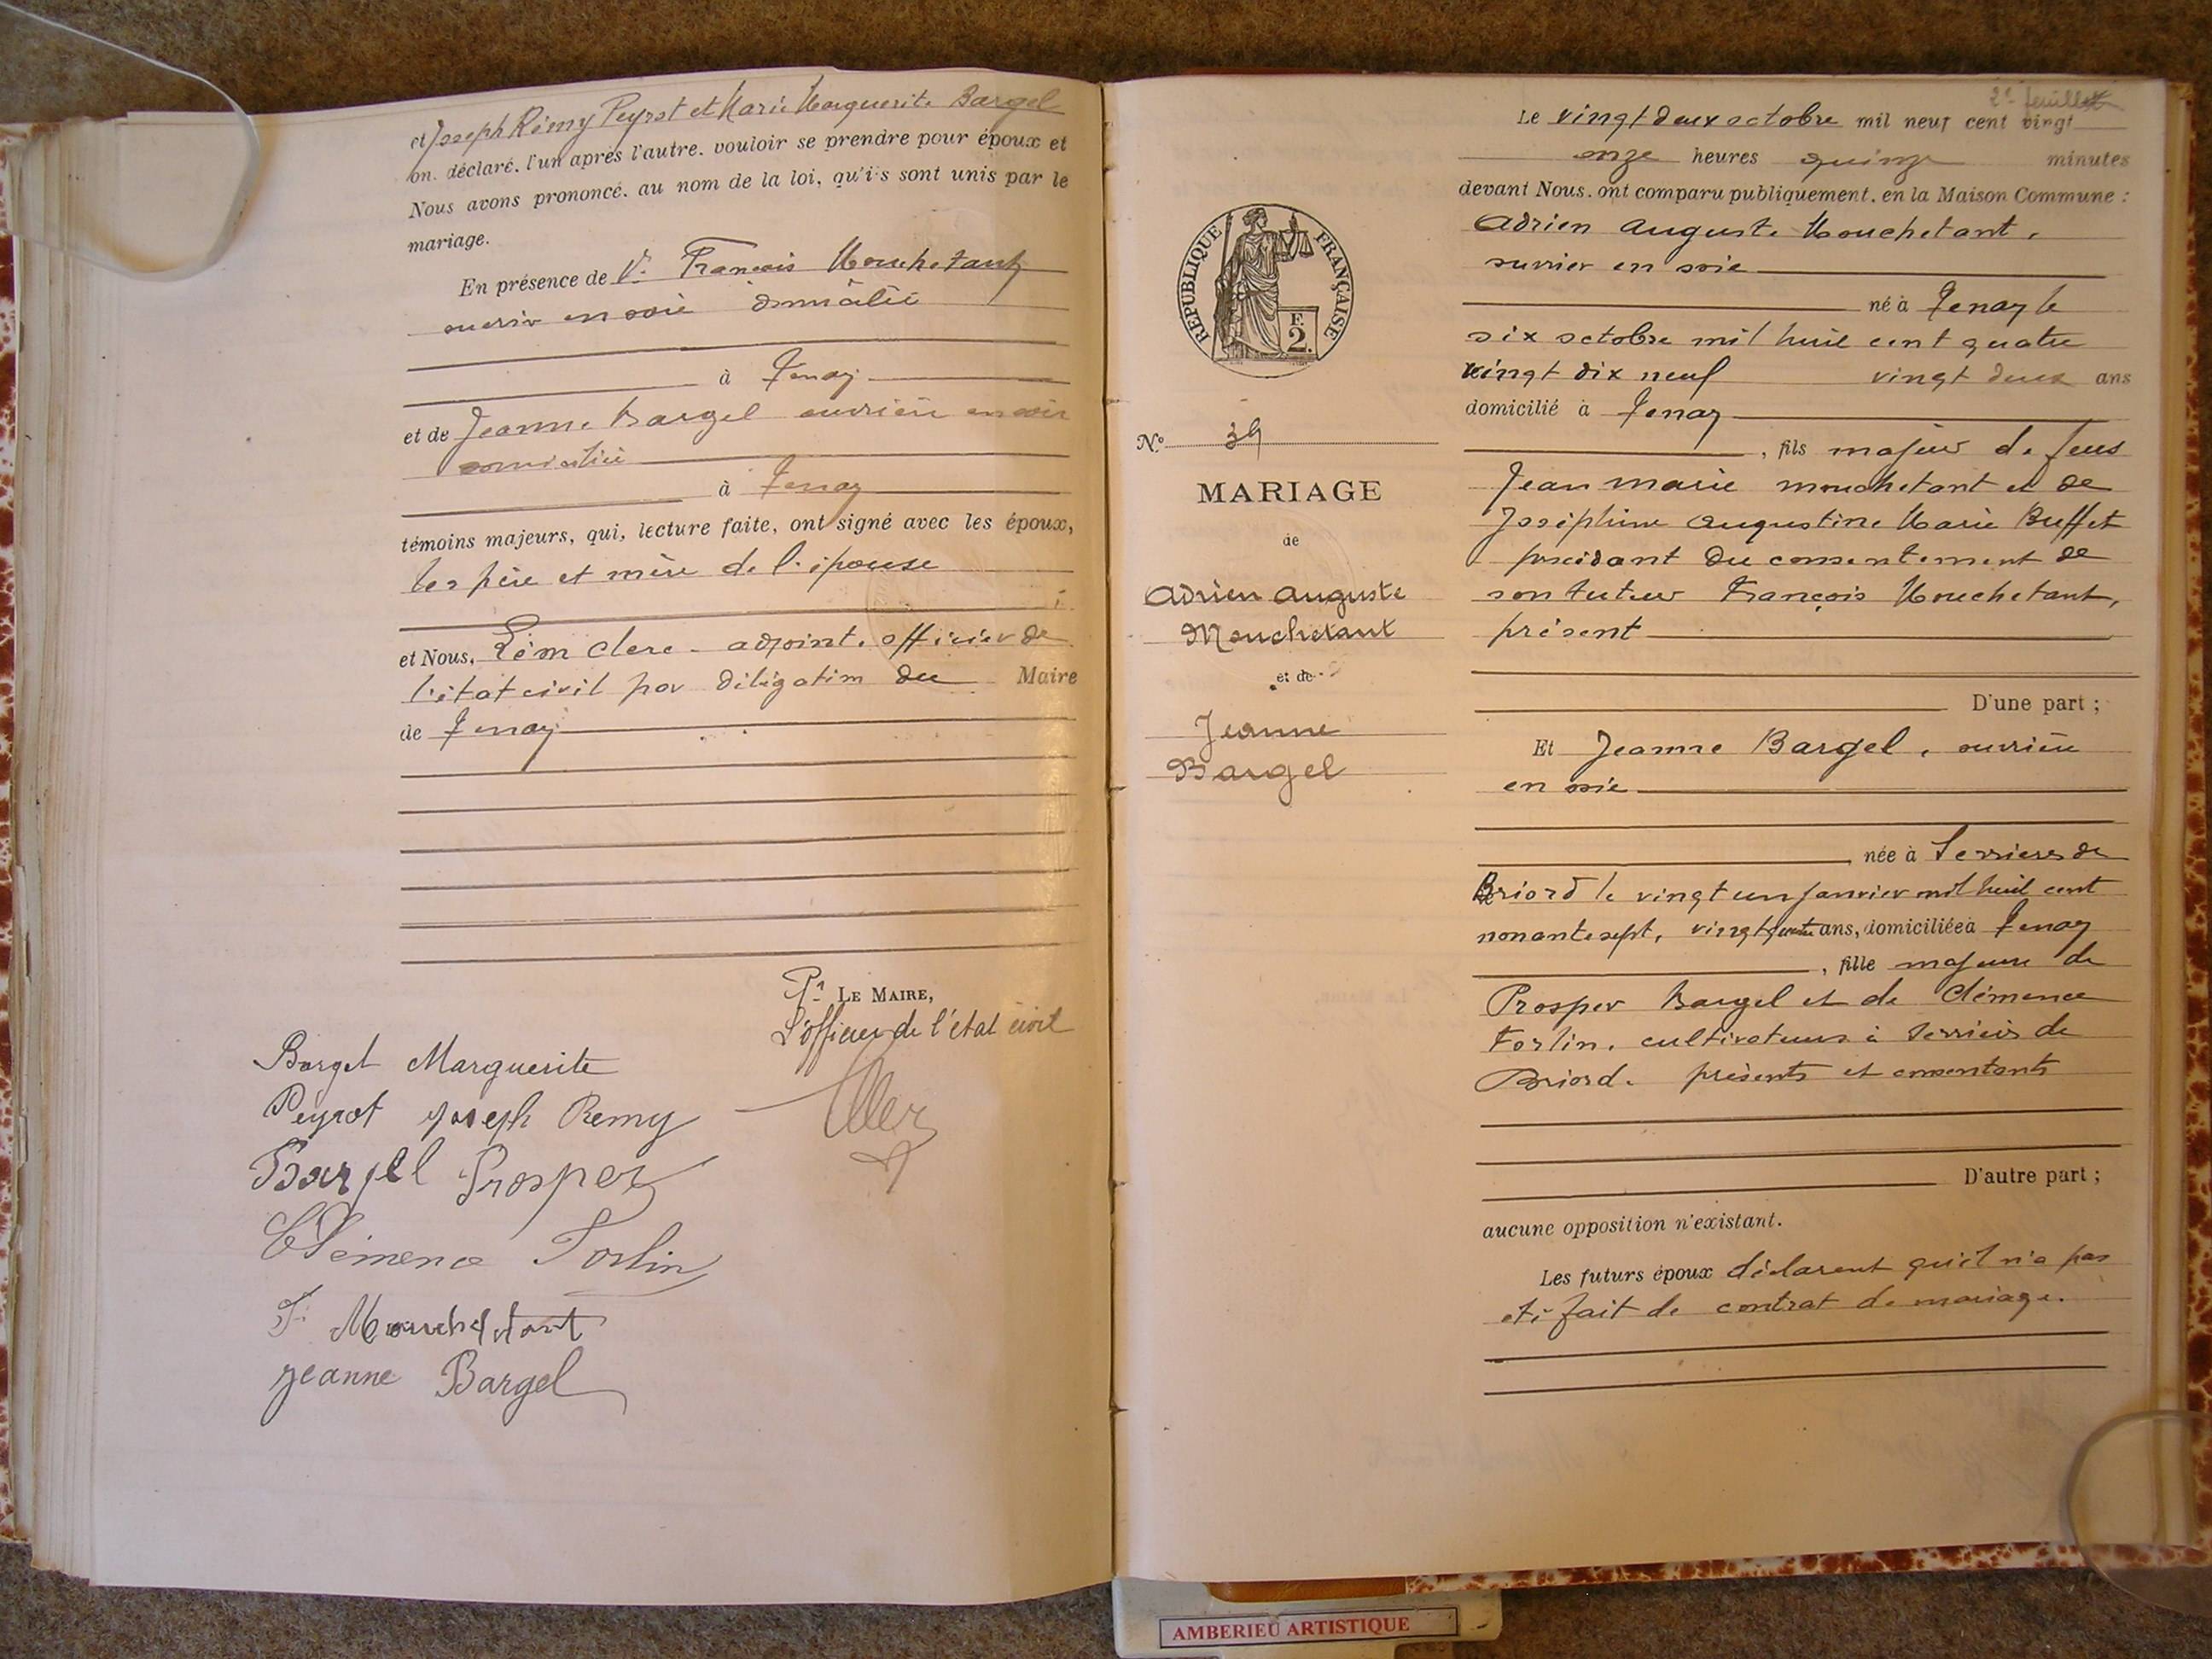 et Joseph Rémy Peyrot et Marie Marguerite Bargel
on. déclaré. l'un après l'autre. vouloir se prendre pour époux et
Nous avons prononcé. au nom de la loi, qu'i's sont unis par le
mariage.
En présence de François Mouchetant
ouvrier en soie domicilié
à Tenay
et de Jeanne Bargel ouvrière en soie
domiciliée
à Tenay
témoins majeurs, qui, lecture faite, ont signé avec les époux,
les père et mère de l'épouse
et Nous, Clerc adjoint. officier de
l'état civil par délégation du Maire
de Tenay
Pr LE MAIRE,
L'officier de l'état civil
Bargel Marguerite
Peyrot Joseph Remy
Bargel Prosper
Clémence Forlin
F. Mouchetant
Jeanne Bargel
REPUBLIQUE FRANÇAISE
F.
2.
No 39
MARIAGE
de
Adrien Auguste
Mouchetant
et de
Jeanne
Bargel
2e feuillet
Le vingt deux octobre mil neuf cent vingt
onze heures quinze minutes
devant Nous. ont comparu publiquement. en la Maison Commune :
Adrien Auguste Mouchetant,
ouvrier en soie
né à Tenay le
six octobre mil huit cent quatre
vingt dix neuf vingt deux ans
domicilié à Tenay
, fils majeur de feus
Jean Marie Mouchetant et de
Joséphine Augustine Marie Buffet
procédant du consentement de
son tuteur François Mouchetant,
présent
D'une part ;
Et Jeanne Bargel, ouvrière
en soie
née à Serrières de
Briord le vingt un janvier mil huit cent
nonante sept, vingt quatre ans, domiciliée à Tenay
, fille majeure de
Prosper Bargel et de Clémence
Forlin, cultivateurs à Serrières de
Briord. présents et consentants
D'autre part ;
aucune opposition n'existant.
Les futurs époux déclarent qu'il n'a pas
été fait de contrat de mariage.
AMBERIEU ARTISTIQUE